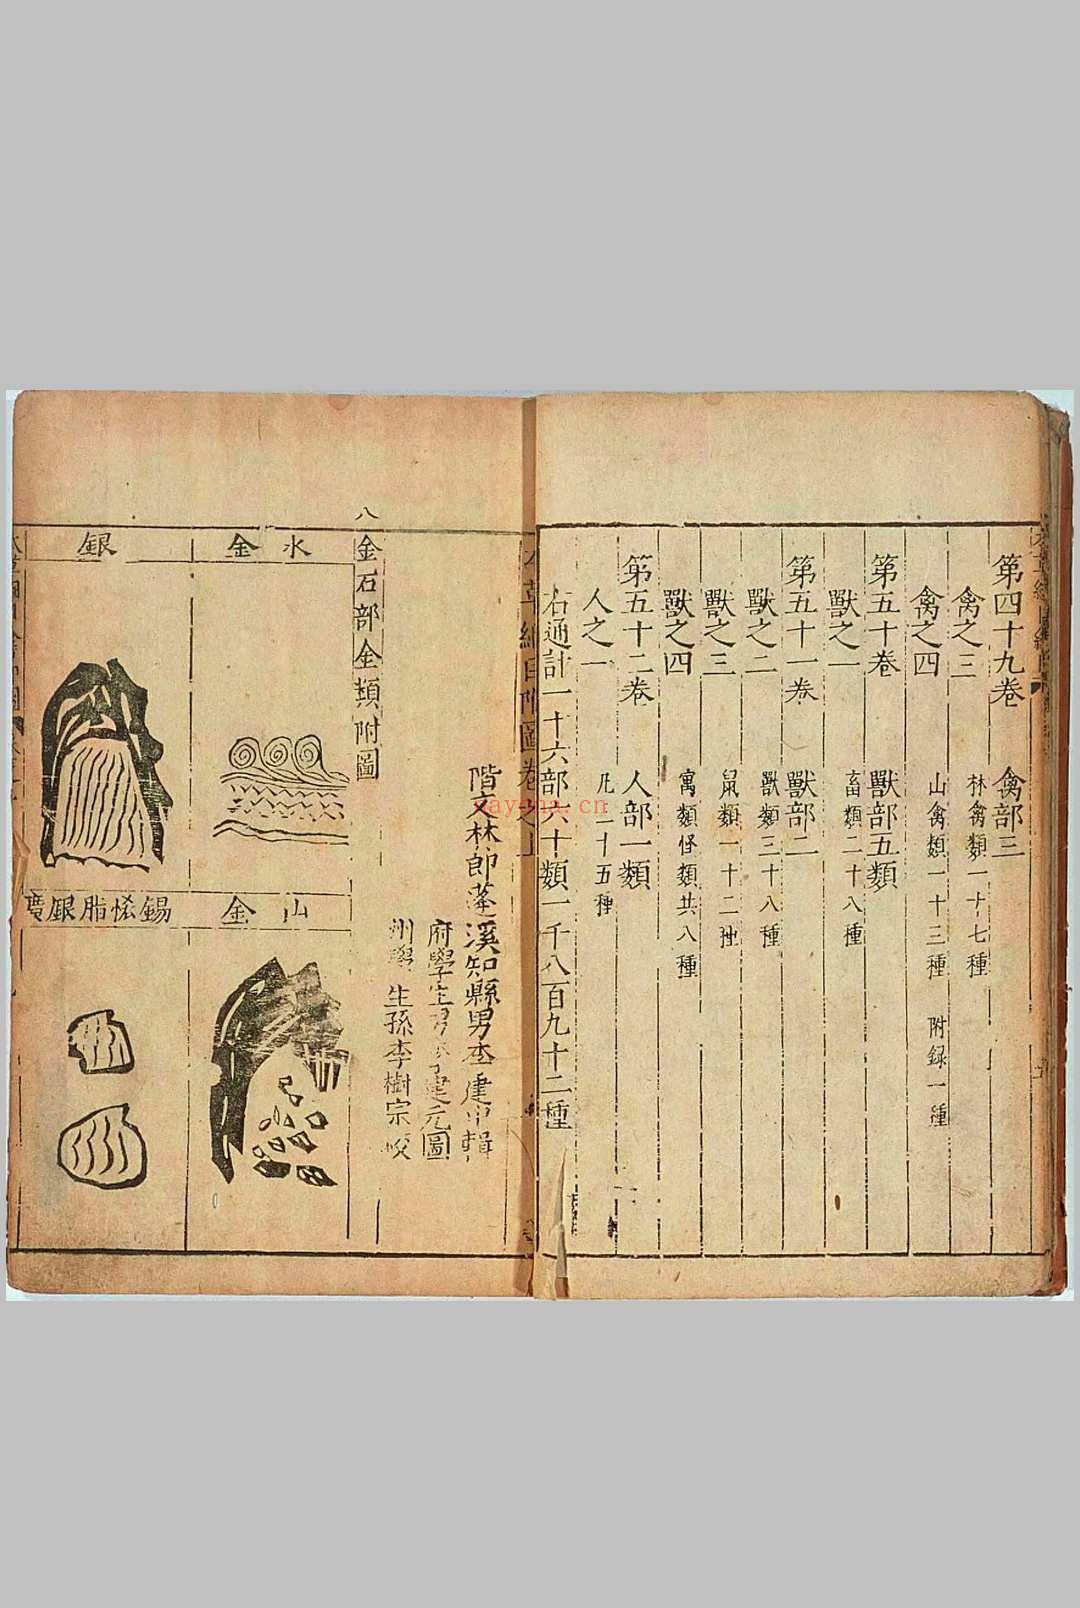 第四十九卷　禽部三
禽之三　林禽類一十七種
禽之四　山禽類一十三種　附録一種
第五十卷　獸部五類
獸之一　畜類二十八種
第五十一卷　獸部二
獸之二　獸類三十八種
獸之三　鼠類一十二種
獸之四　寓類怪類共八種
第五十二卷　人部一類
人之一　凡二十五種
右通計一十六部六十類一千八百九十二種
本草綱目附圖卷之上
階文林郎蓬溪知縣男李建中輯
府學生男李建元圖
州學生孫李樹宗校
八
金石部金類附圖
水金
山金
銀
錫恡脂銀礦
nayona.cn